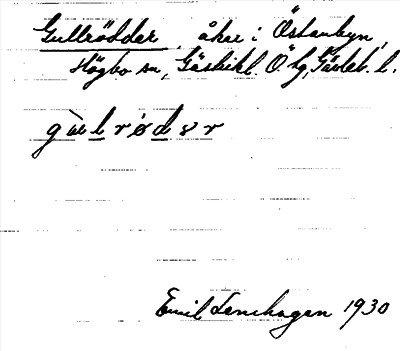 Gullrödder, åker i Östanbyn,
Högbo sn, Gästrikl. Ö. tg, Gävleb. l.
gùlrødər
Emil Lenhagen 1930